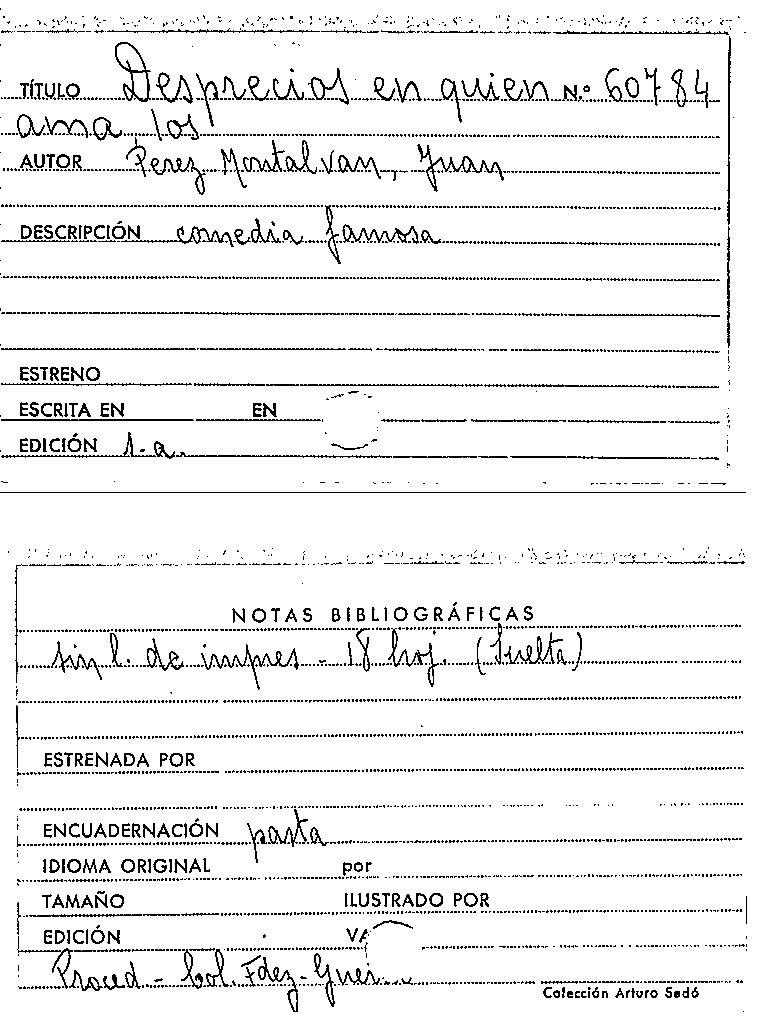 TÍTULO Desprecios en quien N.º 60784
ama, los
AUTOR Perez Montalvan, Juan
DESCRIPCIÓN comedia famosa
ESTRENO
ESCRITA EN EN
EDICIÓN s.a.
NOTAS BIBLIOGRÁFICAS
sin l. de impres - 18 hoj. (Suelta)
ESTRENADA POR
ENCUADERNACIÓN pasta
IDIOMA ORIGINAL por
TAMAÑO ILUSTRADO POR
EDICIÓN
Proced - Col. Fdez-
Colección Arturo Sedó